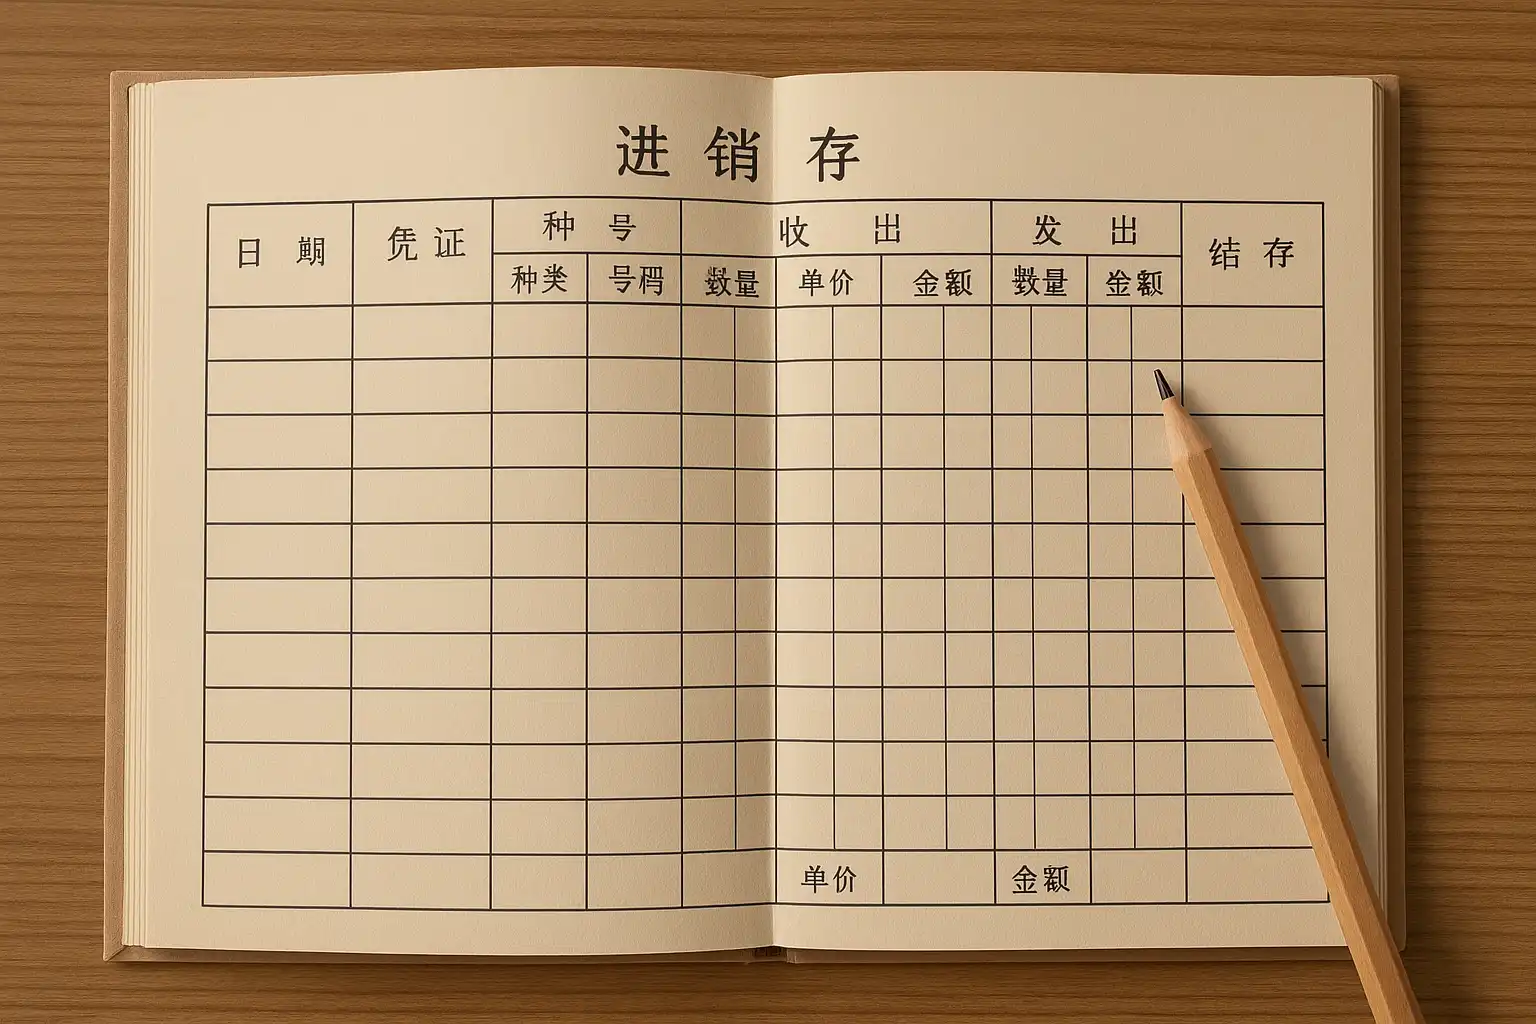 进销存
日 凭证 种号 收出 发出 结存
种类 号 数量 单价 金额 数量 金额
单价 金额